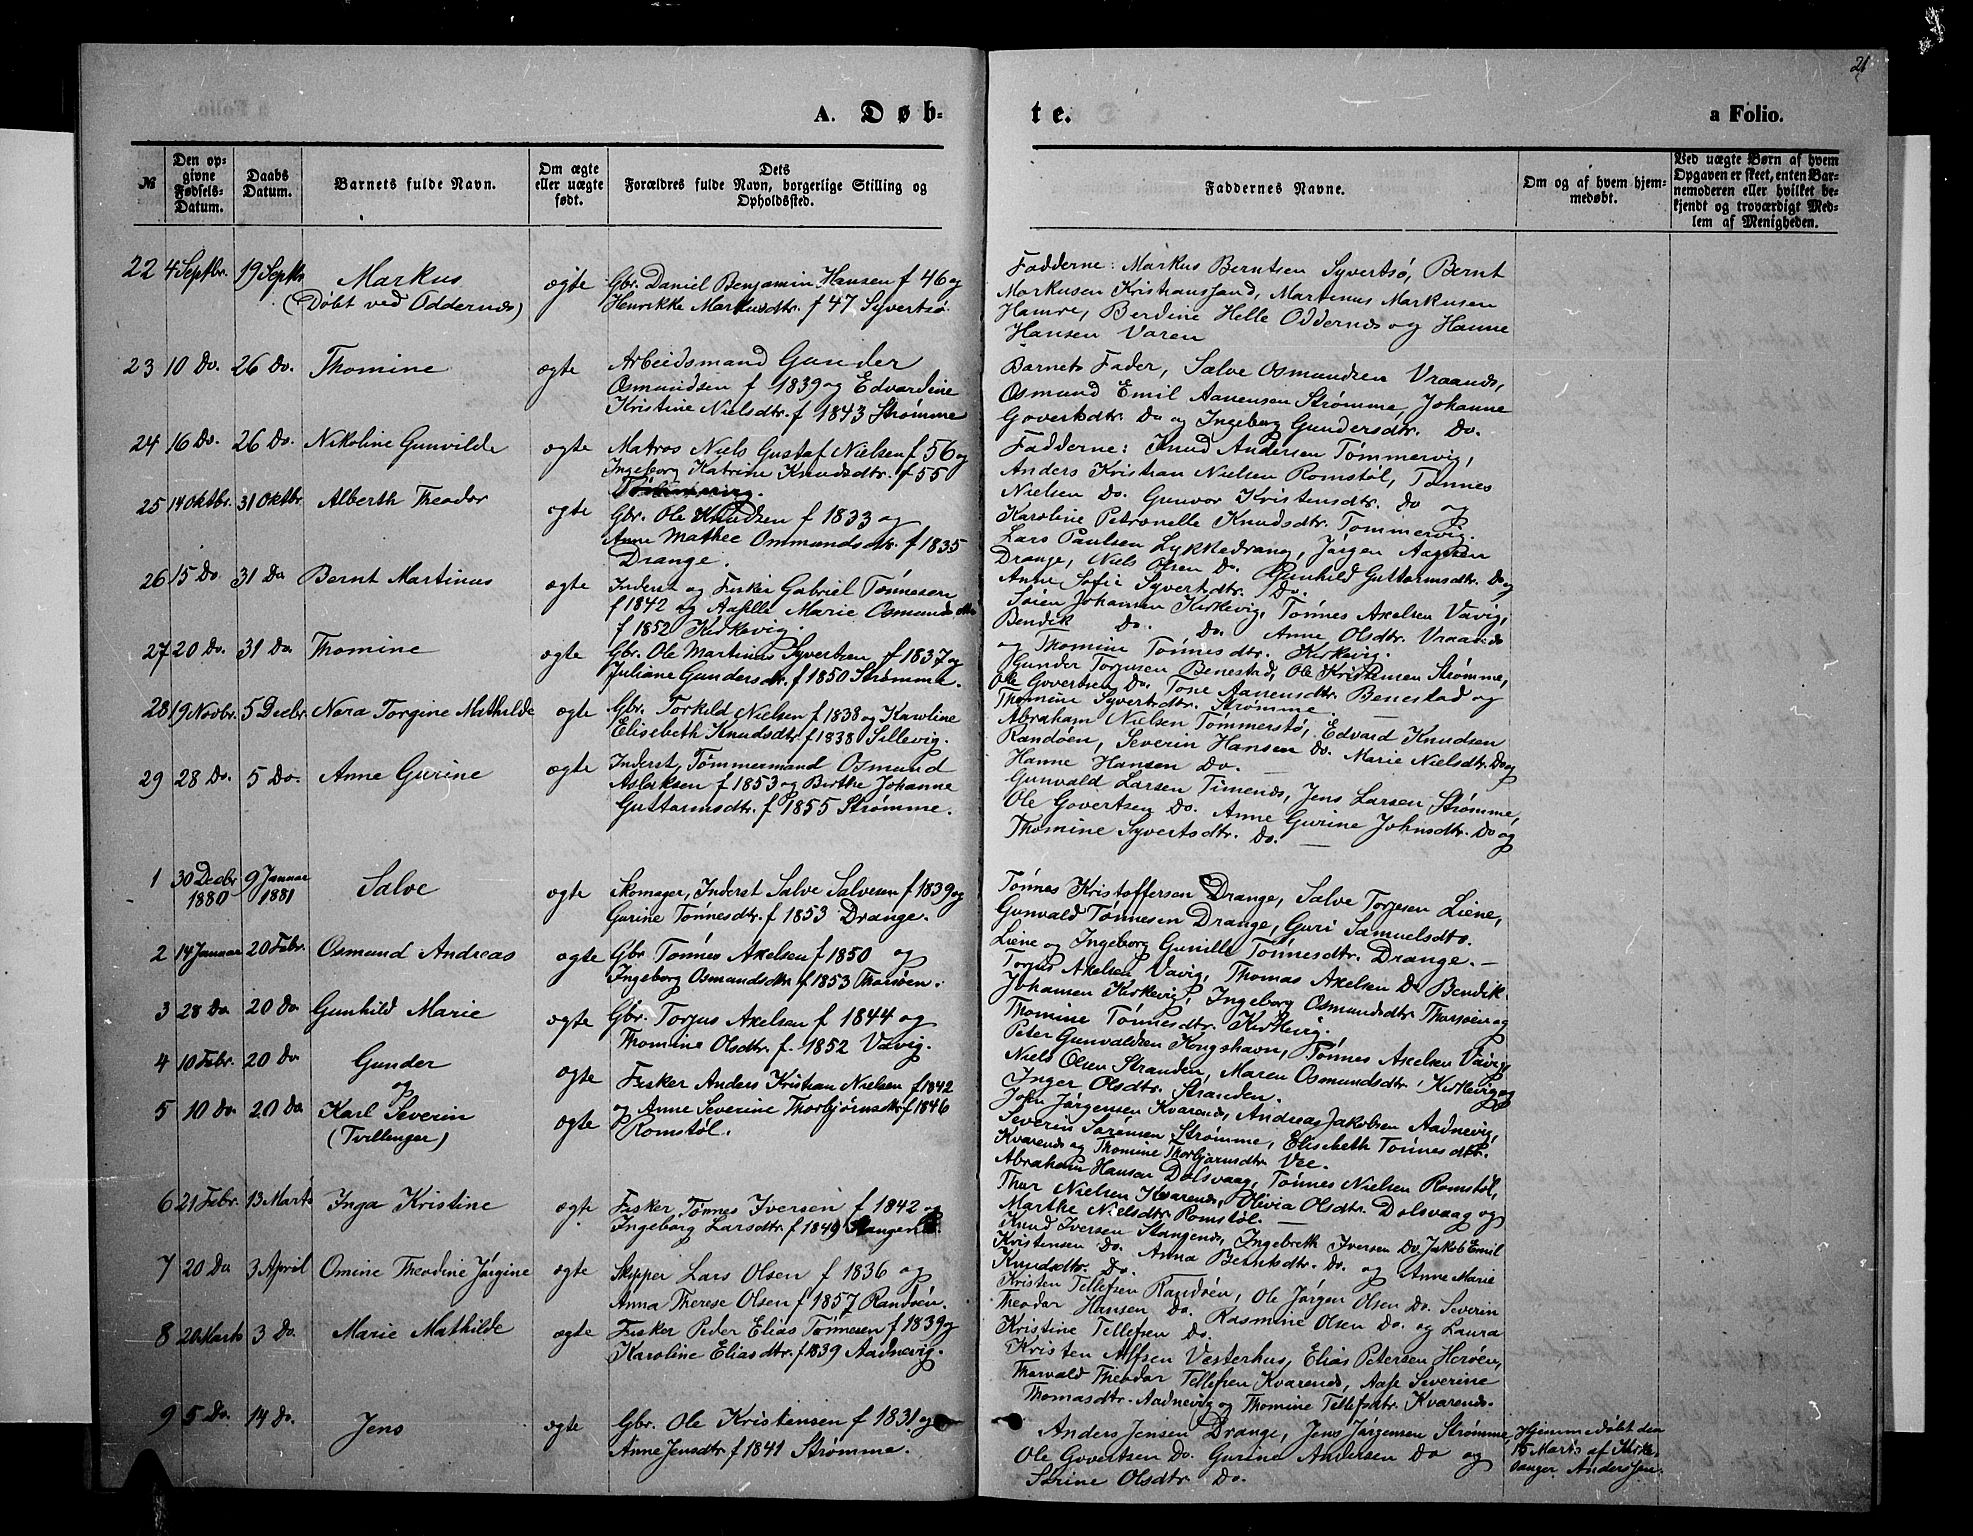 21
A. Døb-
te.
a Folio.
№
Den op-
givne
Fødsels-
Datum.
Daabs
Datum.
Barnets fulde Navn.
Om ægte
eller uægte
født.
Dets
Forældres fulde Navn, borgerlige Stilling og
Opholdssted.
Faddernes Navne.
Om og af hvem hjem-
medøbt.
Ved uægte Børn af hvem
Opgaven er skeet, enten Bar-
nemoderen eller hvilket be-
kjendt og troværdigt Med-
lem af Menigheden.
22 4 Septbr. 19 Septbr Markus
(Døbt ved Oddernes)
ægte
Gbr. Daniel Benjamin Hansen f 46 og
Henrikke Markusdtr. f 47 Syvertsø.
Fadderne: Markus Berntsen Syvertsø, Bernt
Markusen Kristianssand, Martinus Markusen
Hamre, Berdine Helle Oddernes og Hanne
Hansen Varen
23 10 Do. 26 Do. Thomine
ægte
Arbeidsmand Gunder
Osmundsen f 1839 og Edvardine
Kristine Nielsdtr. f 1843 Strømme
Barnets Fader, Salve Osmundsen Vraanes,
Osmund Emil Aanensen Strømme, Johanne
Govertsdtr. Do og Ingeborg Gundersdtr. Do.
24 16 Do. 26 Do. Nikoline Gunvilde
ægte
Matros Niels Gustaf Nielsen f 56 og
Ingeborg Katrine Knudsdtr. f 55
Tømmervig.
Fadderne: Knud Andersen Tømmervig,
Anders Kristian Nielsen Romstøl, Tønnes
Nielsen Do. Gunvor Kristensdtr. Do og
Karoline Petronelle Knudsdtr. Tømmervig.
25 14 Oktbr. 31 Oktbr. Alberth Theodor
ægte
Gbr. Ole Knudsen f 1833 og
Anne Mathee Ommundsdtr. f 1835
Drange.
Lars Paulsen Lykkedrang, Jørgen Aagesen
Drange, Niels Olsen Do. Gunhild Guttormsdtr. Do og
Anne Sofie Syvertsdtr. Do.
26 15 Do 31 Do Bernt Martinus
ægte
Inderst og Fisker Gabriel Tønnesen
f 1842 og Aasille Marie Osmundsdtr
f 1852 Kirkevig.
Søren Johansen Kirkevig, Tønnes Axelsen Vavig,
Bendik Do. Do. Anne Olsdtr. Vraanes
og Thomine Tønnesdtr. Kirkevig.
27 20 Do. 31 Do. Thomine
ægte
Gbr. Ole Martinus Syvertsen f 1837 og
Juliane Gundersdtr. f 1850 Strømme.
Gunder Torjusen Benestad, Ole Kristensen Strømme,
Ole Govertsen Do. Tone Aanensdtr. Benestad og
Thomine Syvertsdtr. Strømme.
28 19 Novbr. 5 Decbr. Nora Torgine Mathilde
ægte
Gbr. Torkild Nielsen f 1838 og Karoline
Elisebeth Knudsdtr. f 1838 Sillevig.
Abraham Nielsen Tømmerstø, Edvard Knudsen
Randøen, Severin Hansen Do. Marie Nielsdtr. Do og
Hanne Hansen Do.
29 28 Do. 5 Do. Anne Gurine
ægte
Inderst, Tømmermand Osmund
Aslaksen f 1853 og Birthe Johanne
Guttormsdtr. f 1855 Strømme.
Gunvald Larsen Timenes, Jens Larsen Strømme,
Ole Govertsen Do. Anne Gurine Johnsdtr. Do og
Thomine Syvertsdtr. Do.
1 30 Decbr 1880 9 Januar 1881 Salve
ægte
Skomager, Inderst Salve Salvesen f 1839 og
Gurine Tønnesdtr. f 1853 Drange.
Tønnes Kristoffersen Drange, Salve Torjesen Liene,
Gunvald Tønnesen Drange, Guri Samuelsdtr.
Liene og Ingeborg Gunille Tønnesdtr. Drange.
2 14 Januar 20 Febr. Osmund Andreas
ægte
Gbr. Tønnes Axelsen f 1850 og
Ingeborg Osmundsdtr. f 1853 Tharsøen.
Torjus Axelsen Vavig, Thomas Axelsen Do Bendik
Johansen Kirkevig, Ingeborg Osmundsdtr Tharsøen og
Thomine Tønnesdtr. Kirkevig.
3 28 Do. 20 Do. Gunhild Marie
ægte
Gbr. Torjus Axelsen f 1844 og
Thomine Olsdtr. f. 1852 Vavig.
Peter Gunvaldsen Kongshavn, Tønnes Axelsen Vavig,
Niels Olsen Stranden, Maren Osmundsdtr. Kirkevig og
Inger Olsdtr. Stranden.
4 10 Febr. 20 Do Gunder
og
ægte
Fisker Anders Kristian Nielsen f 1842
5 10 Do 20 Do Karl Severin
(Tvillinger)
ægte
og Anne Severine Thorbjørnsdtr f 1846
Romstøl.
John Jørgensen Kvarenes, Andreas Jakobsen Aadnevig,
Severin Sørensen Strømme, Elisebeth Tønnesdtr.
Kvarenes og Thomine Thorbjørnsdtr Vee.
Abraham Hansen Dolsvaag, Tønnes Nielsen Romstøl,
Thar Nielsen Kvarenes, Olivia Olsdtr. Dolsvaag og
Marthe Nielsdtr Romstøl.
6 21 Febr. 13 Marts Inga Kristine
ægte
Fisker Tønnes Iversen f 1842 og
Ingeborg Larsdtr. f 1849 Stangenes.
Knud Iversen Stangenes, Ingebreth Iversen Do, Jakob Emil
Kristensen Do. Anna Berntsdtr. Do. og Anne Marie
Knudsdtr. Do.
7 20 Do 3 April Omine Theodine Jørgine
ægte
Skipper Lars Olsen f 1836 og
Anna Therese Olsen f 1857 Randøen.
Kristen Tellefsen Randøen, Ole Jørgen Olsen Do. Severin
Theodor Hansen Do. Rasmine Olsen Do. og Laura
Kristine Tellefsen Do.
8 20 Marts 3 Do. Marie Mathilde
ægte
Fisker Peder Elias Tønnesen f 1839 og
Karoline Eliasdtr. f 1839 Aadnevig.
Kristen Alfsen Vesterhus, Elias Petersen Herøen,
Thorvald Theodor Tellefsen Kvarenes, Aase Severine
Thomasdtr. Aadnevig og Thomine Tellefsdtr. Kvarenes.
9 5 Do. 14 Do. Jens
ægte
Gbr. Ole Kristensen f 1831 og
Anne Jensdtr f 1841 Strømme.
Anders Jensen Drange, Jens Jørgensen Strømme,
Ole Govertsen Do. Gurine Andersen Do og
Serine Olsdtr. Do.
Hjemmedøbt den
15 Marts af Kirke-
sanger Anders Jen-